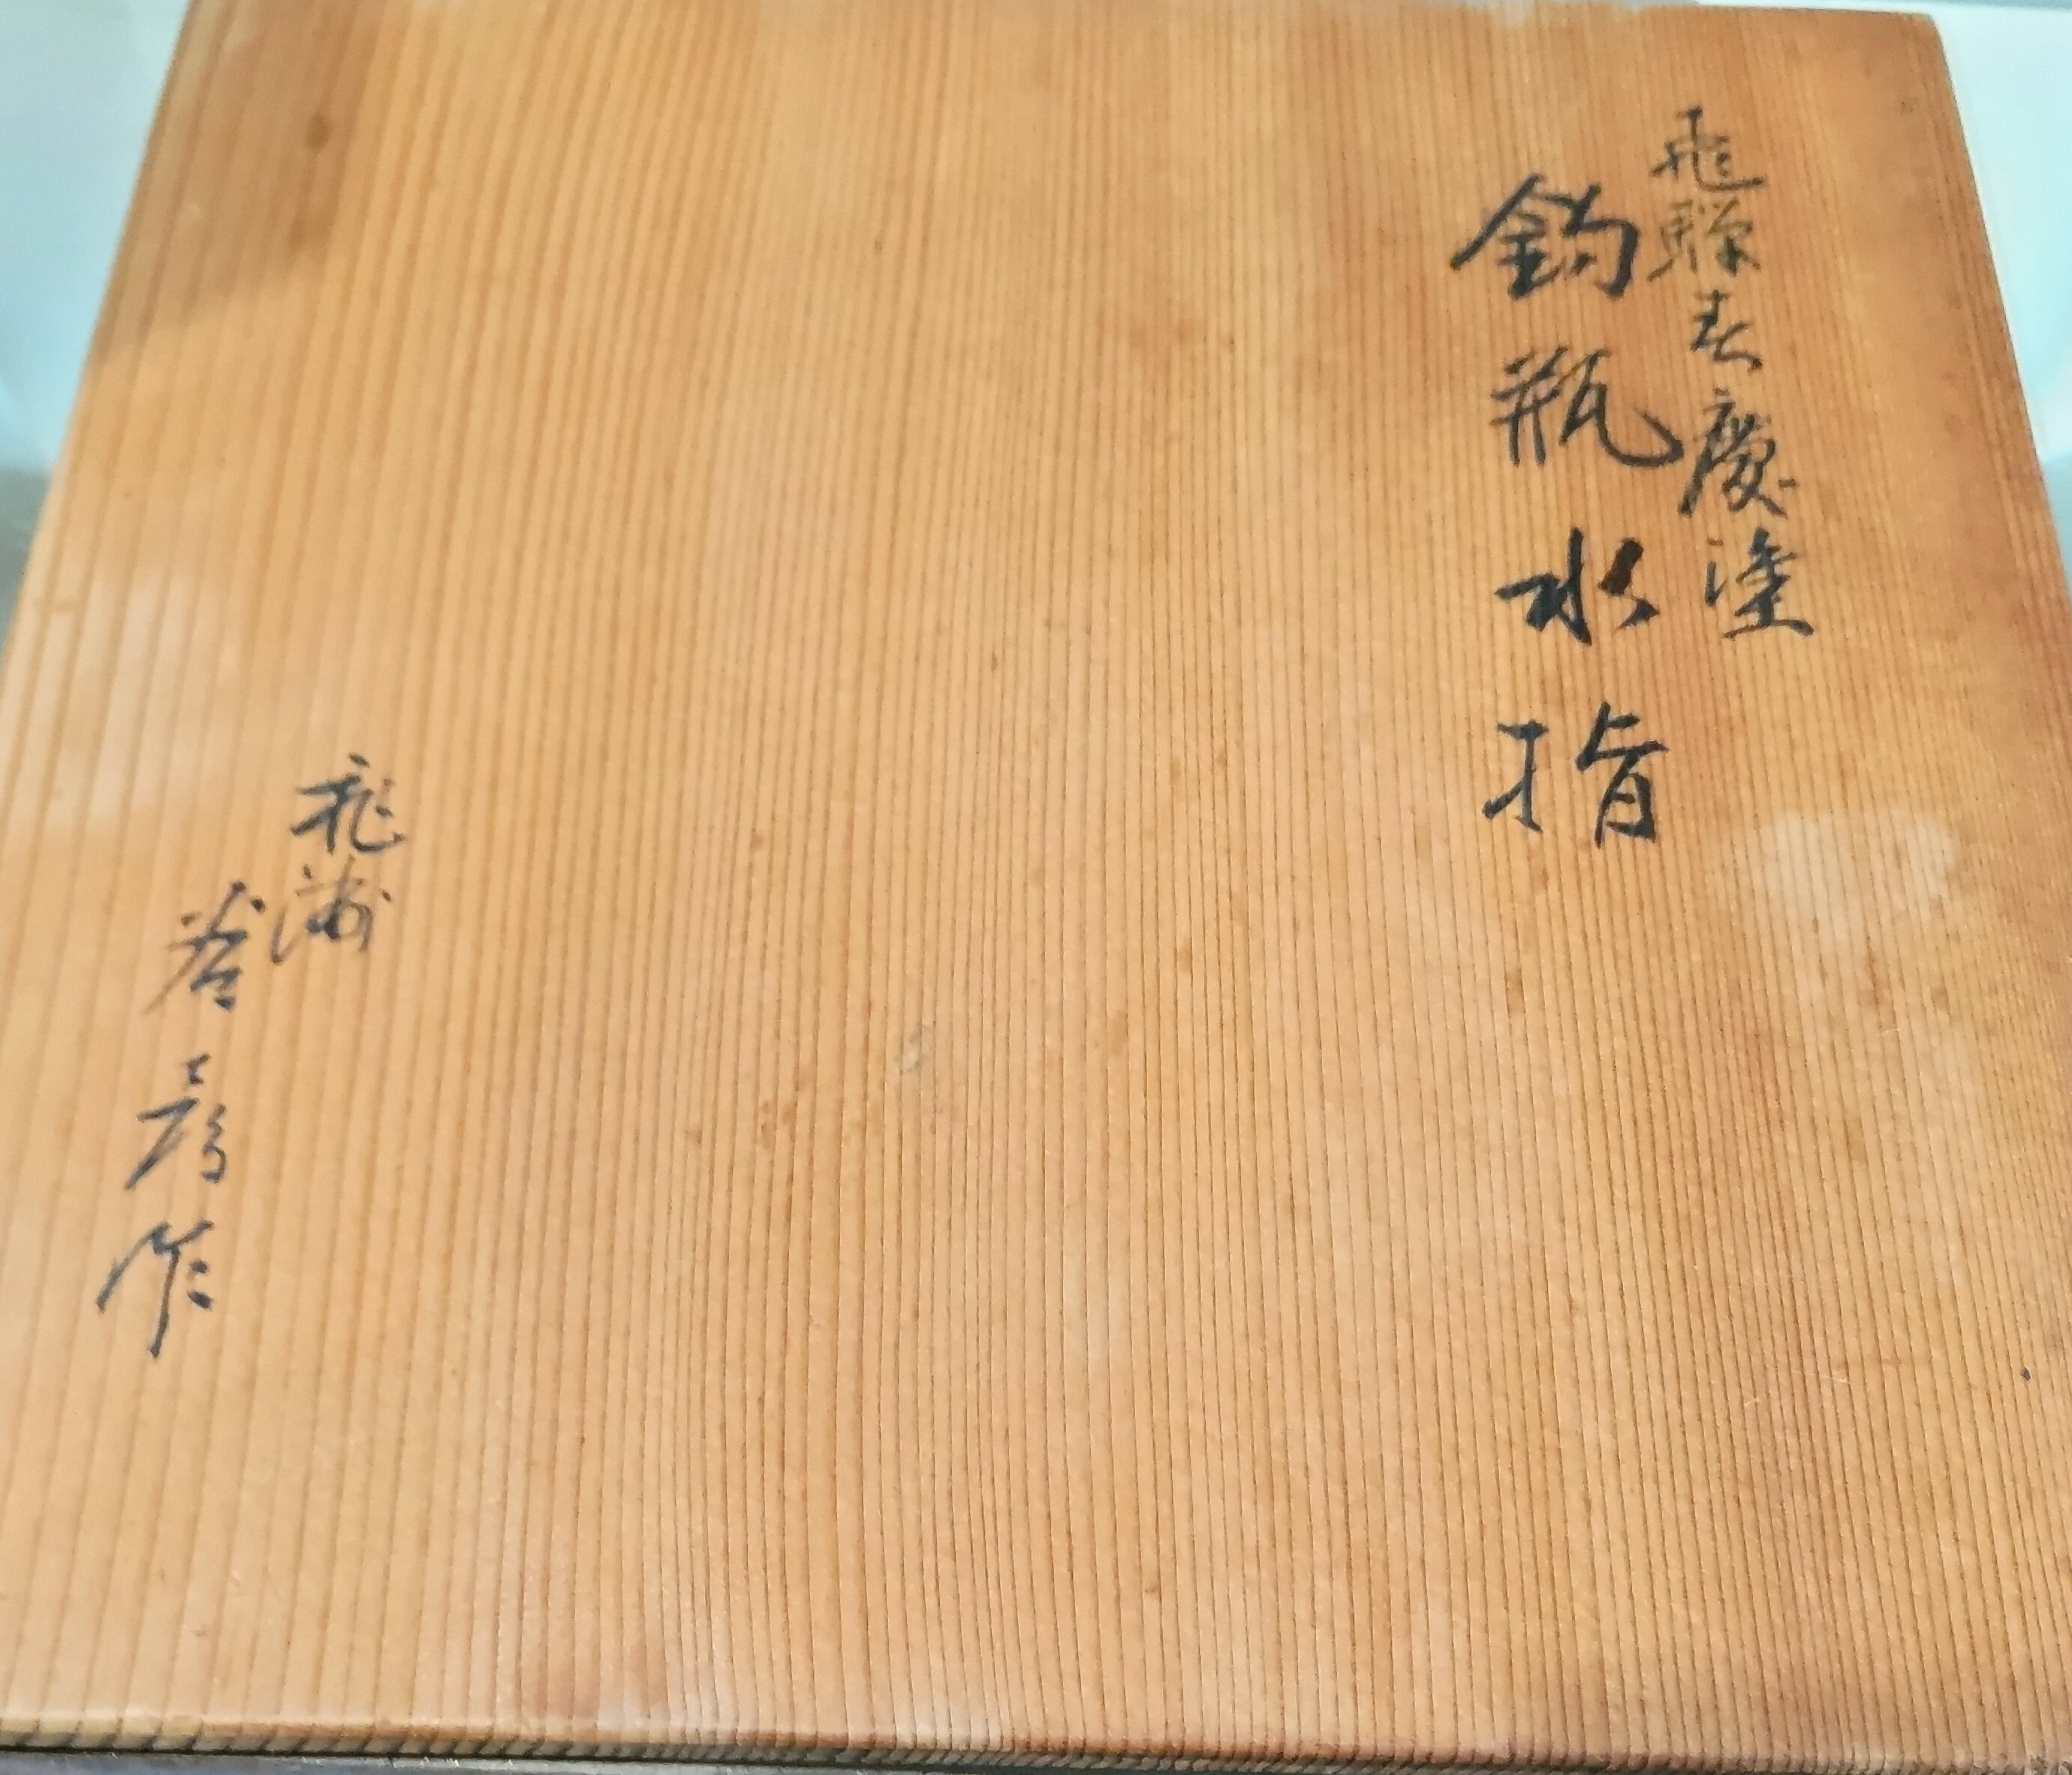 飛騨春慶塗
釣瓶水指
飛洲
作